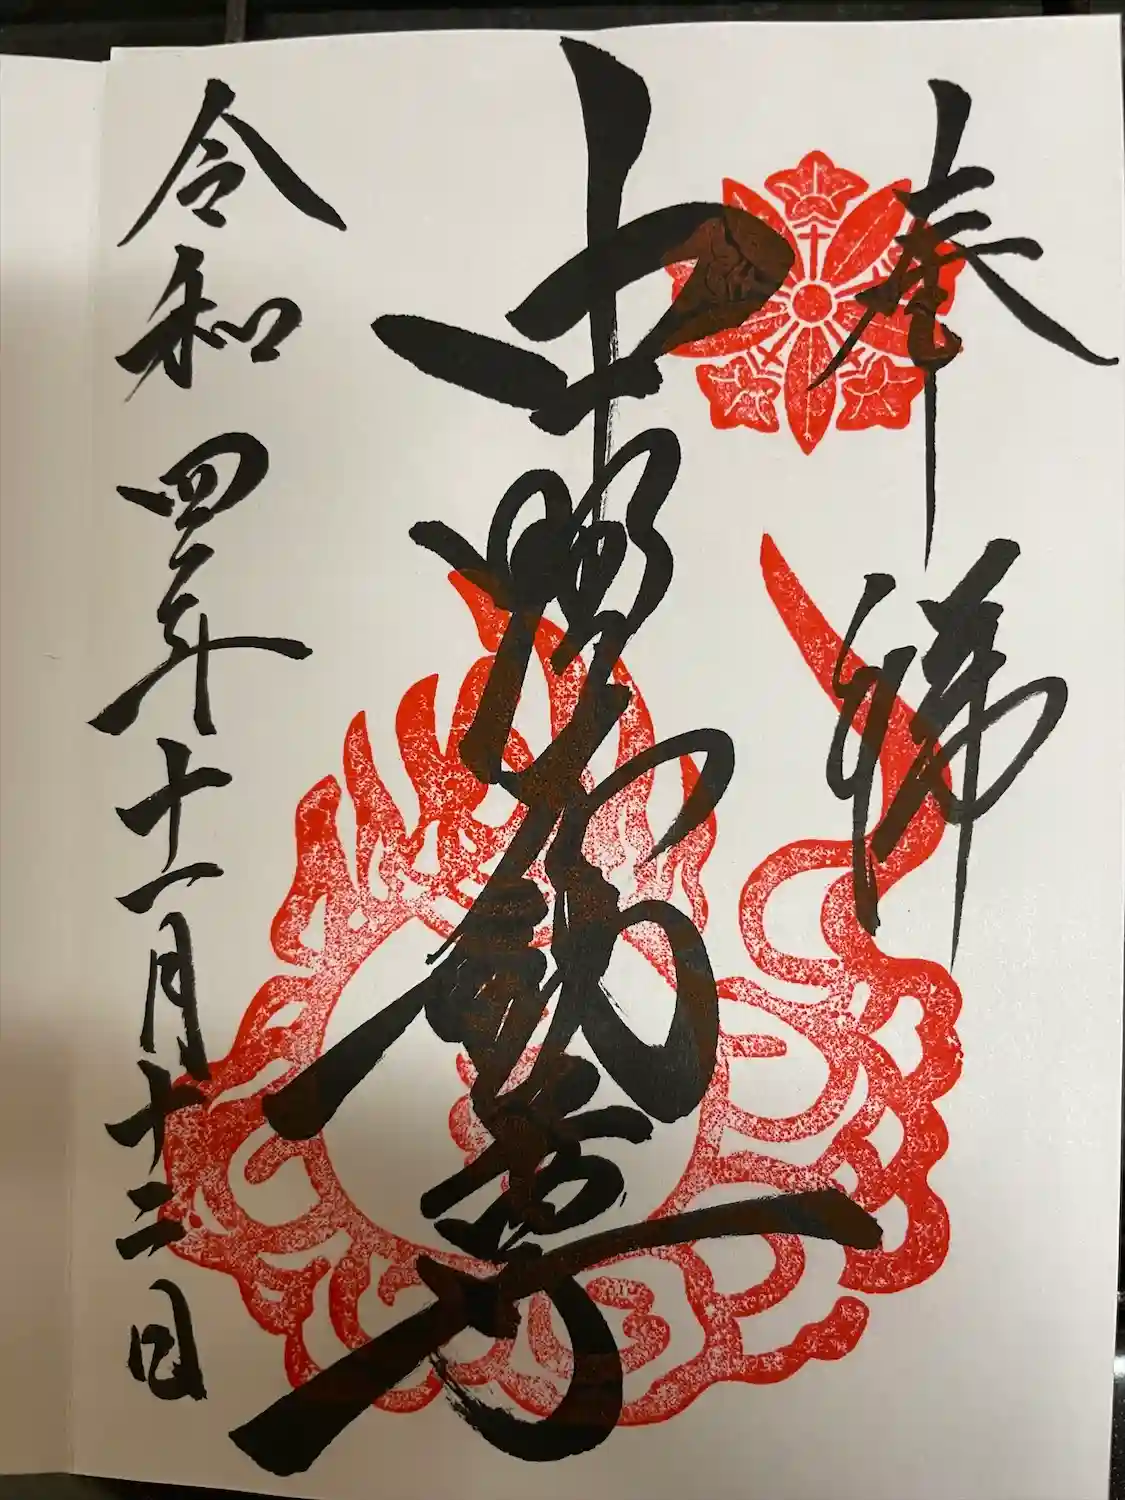 奉拝
中野不動尊
令和四年十一月十二日